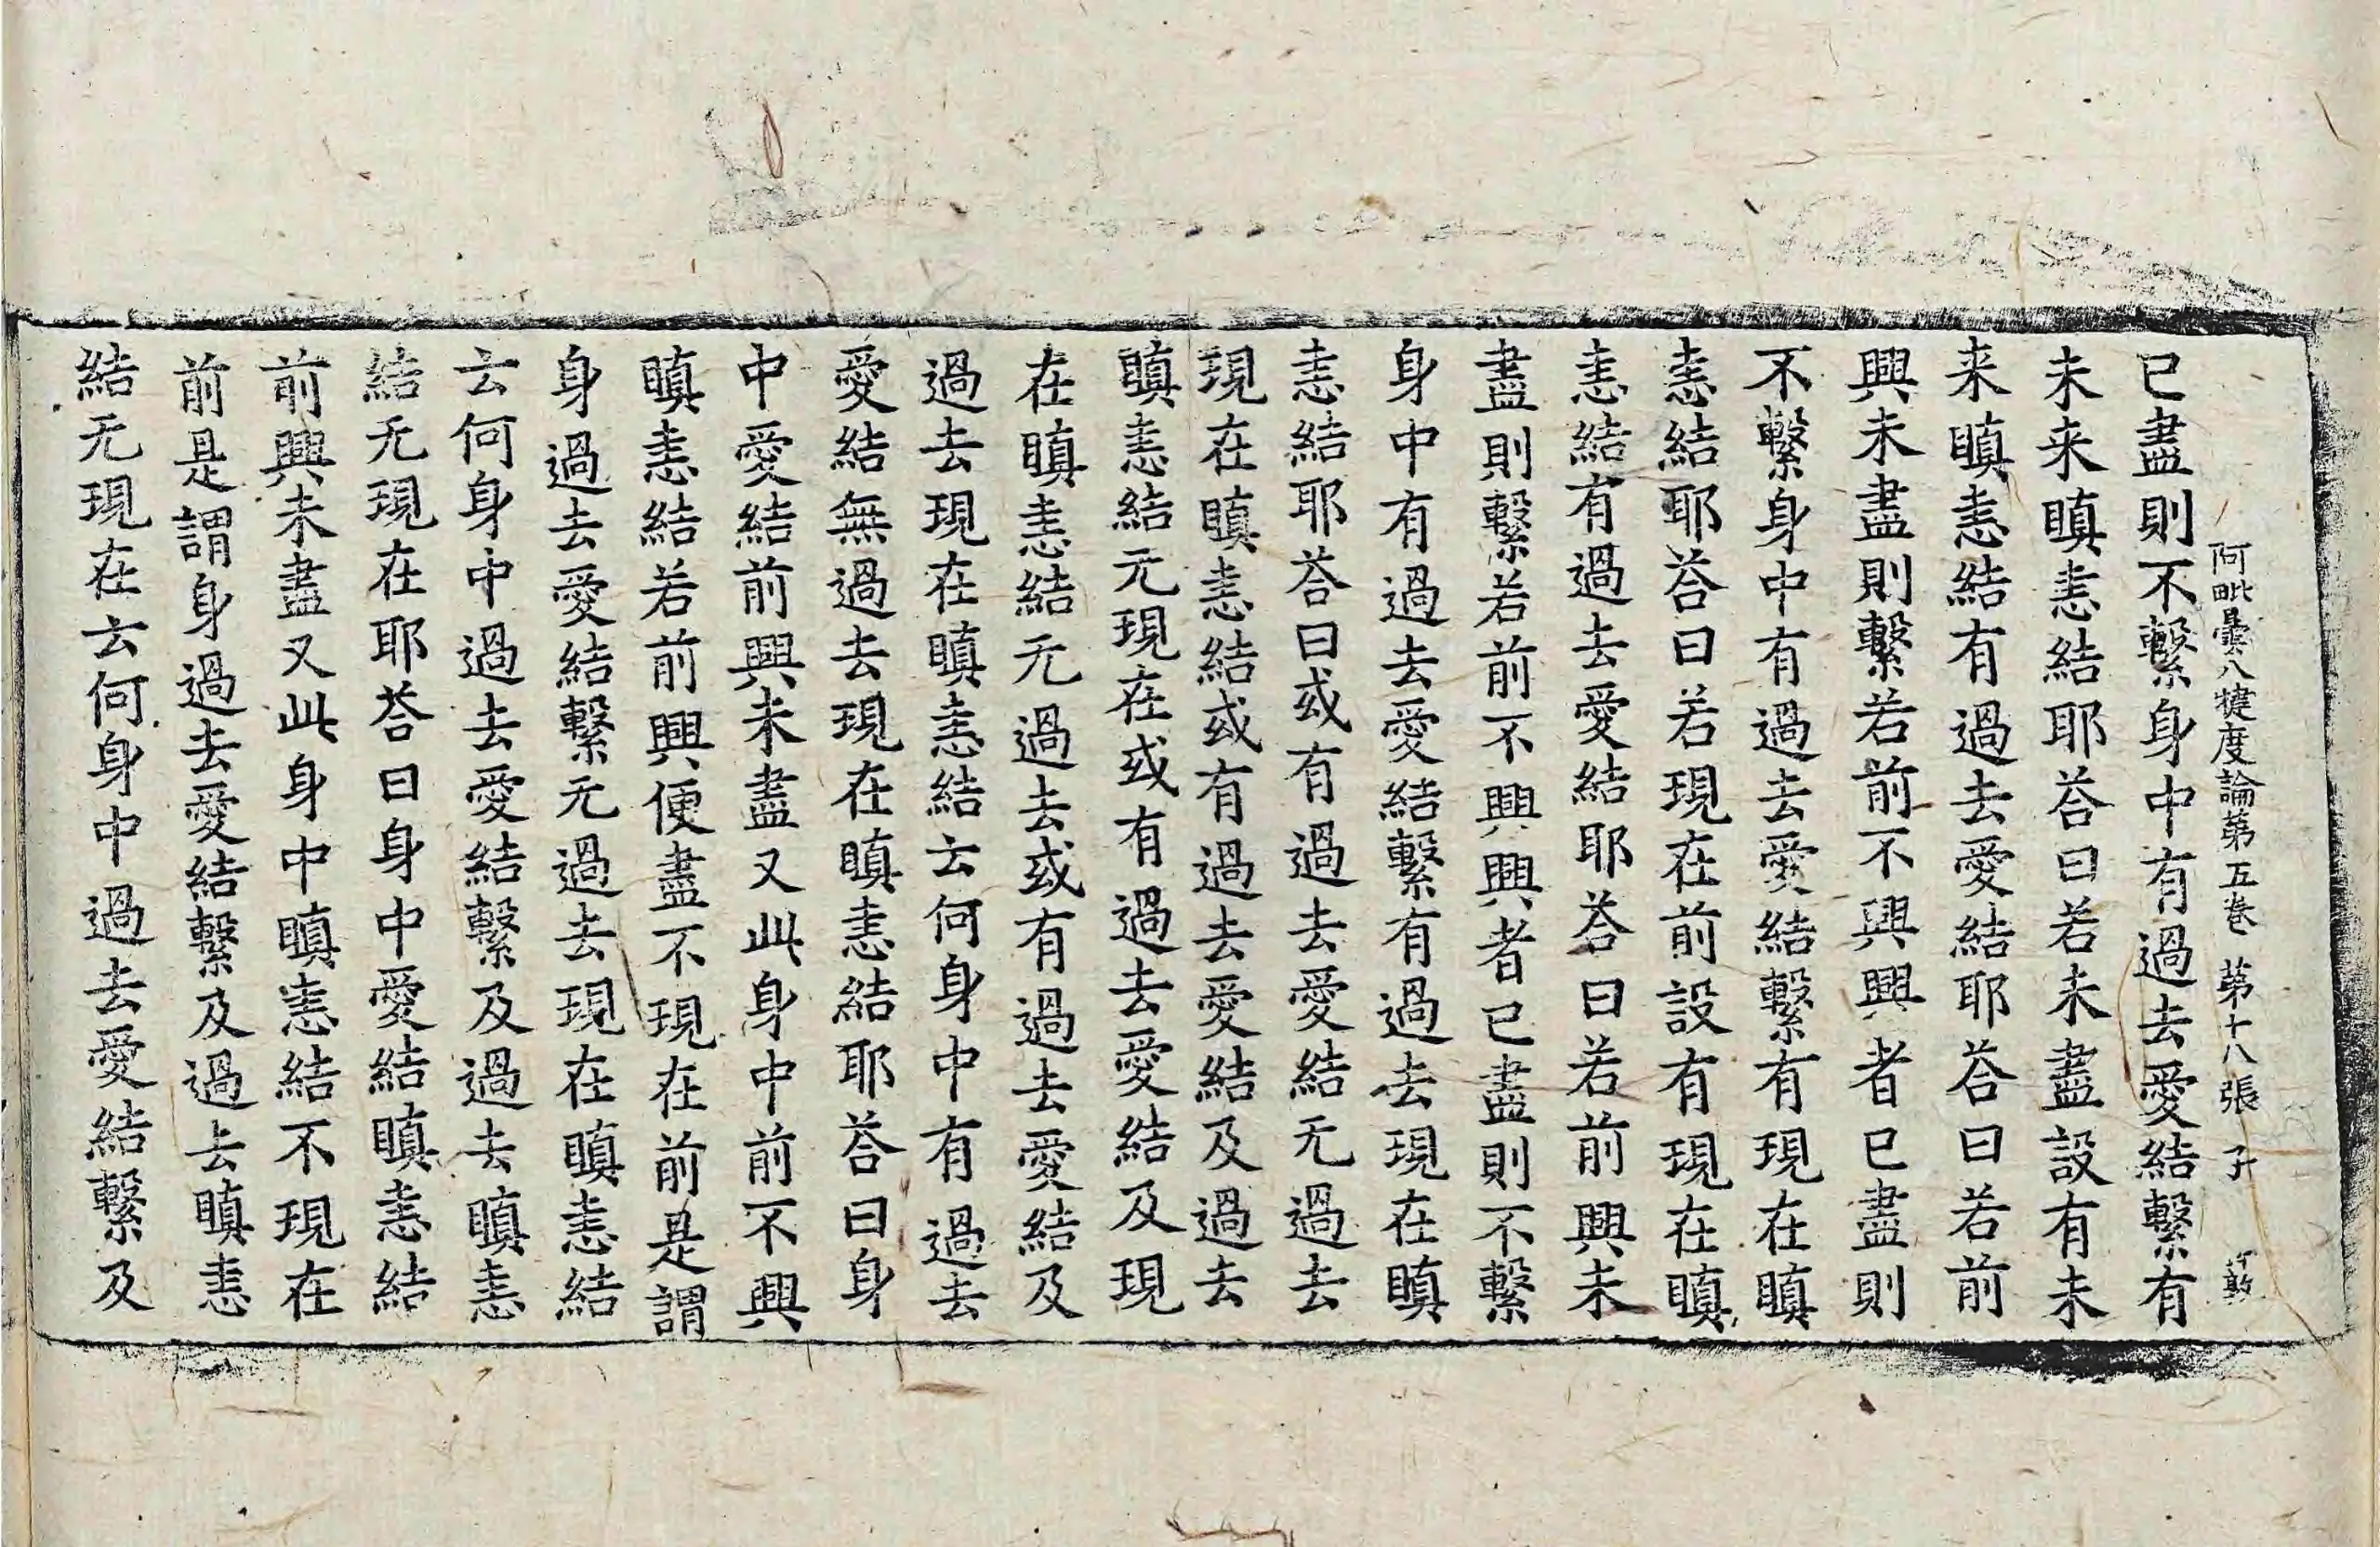 阿毗曇八犍度論第五卷 第十八張
已盡則不繫身中有過去愛結繫有
未来瞋恚結耶荅曰若未盡設有未
来瞋恚結有過去愛結耶荅曰若前
興未盡則繫若前不興興者已盡則
不繫身中有過去愛結繫有現在瞋
恚結耶荅曰若現在前設有現在瞋
恚結有過去愛結耶荅曰若前興未
盡則繫若前不興興者已盡則不繫
身中有過去愛結繫有過去現在瞋
恚結耶荅曰或有過去愛結无過去
現在瞋恚結或有過去愛結及過去
瞋恚結无現在或有過去愛結及現
在瞋恚結无過去或有過去愛結及
過去現在瞋恚結云何身中有過去
愛結無過去現在瞋恚結耶荅曰身
中愛結前興未盡又此身中前不興
瞋恚結若前興便盡不現在前是謂
身過去愛結繫无過去現在瞋恚結
云何身中過去愛結繫及過去瞋恚
結无現在耶荅曰身中愛結瞋恚結
前興未盡又此身中瞋恚結不現在
前是謂身過去愛結繫及過去瞋恚
結无現在云何身中過去愛結繫及